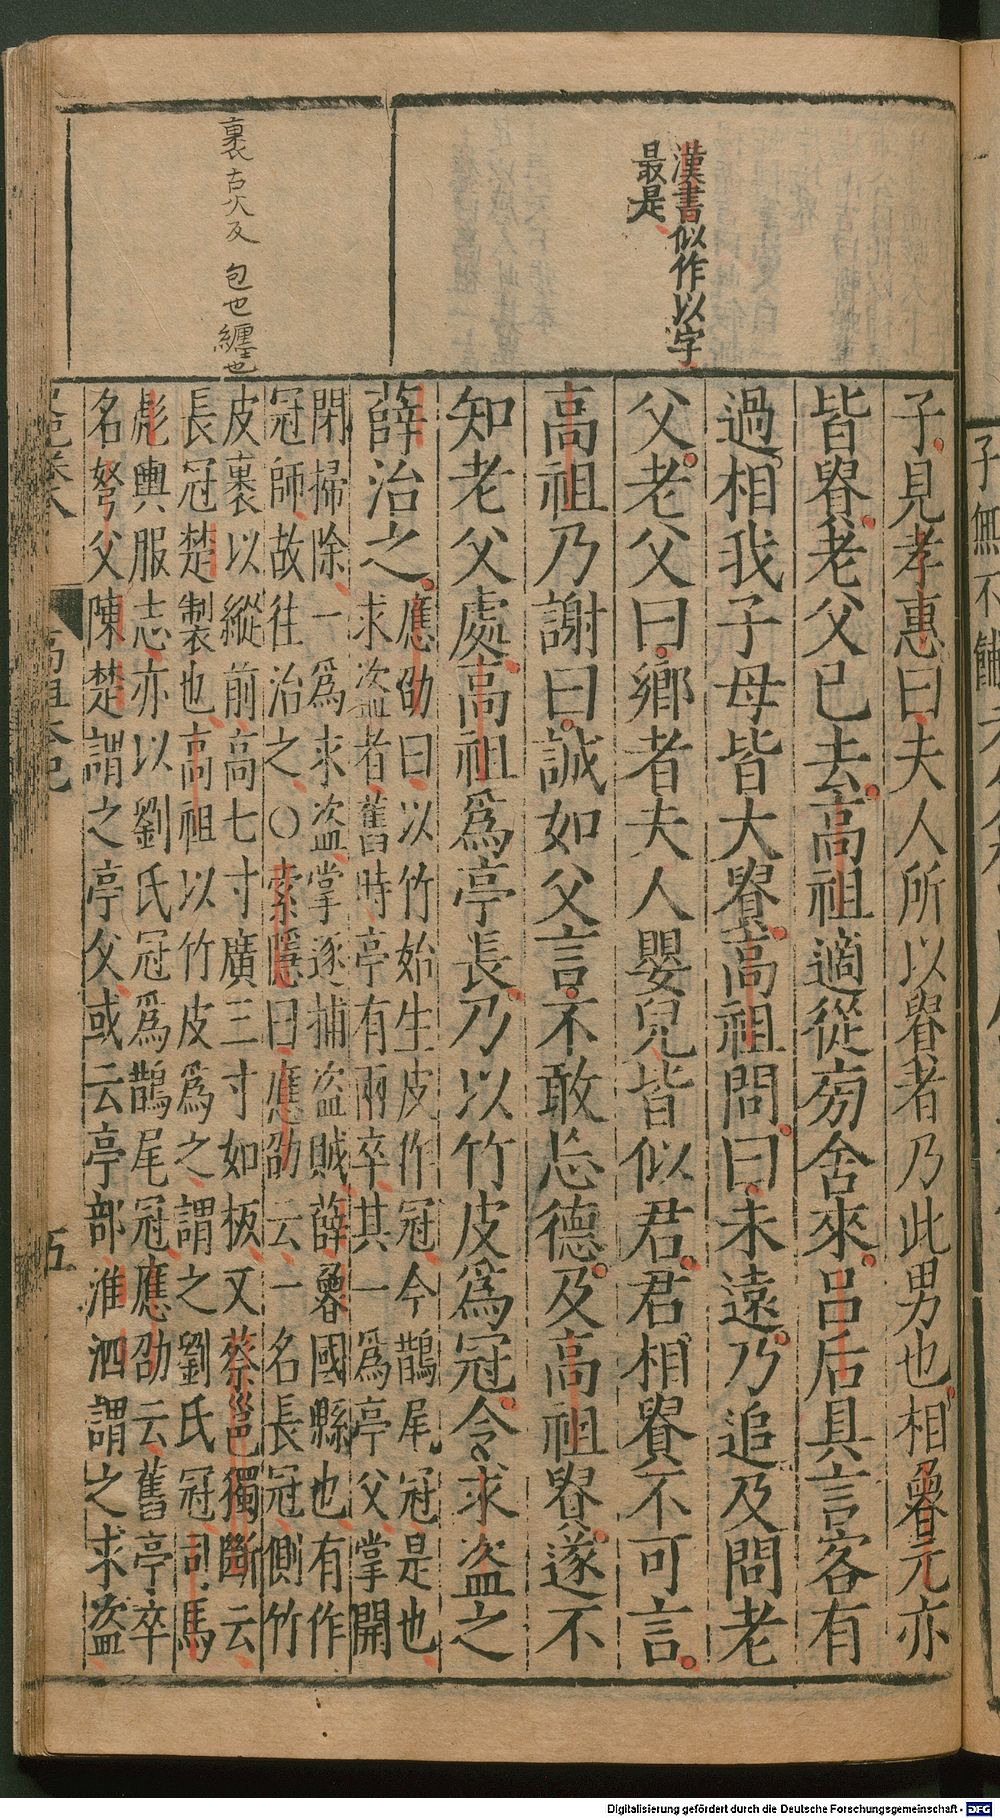 漢書似作以字
最是
裹古火反 包也纏也
子見孝惠曰夫人所以貴者乃此男也相魯元亦
皆貴老父已去高祖適從旁舍來呂后具言客有
過相我子母皆大貴高祖問曰未遠乃追及問老
父老父曰鄉者夫人嬰兒皆似君君相貴不可言
高祖乃謝曰誠如父言不敢忘德及高祖貴遂不
知老父處高祖爲亭長乃以竹皮爲冠令求盗之
薛治之
應劭曰以竹始生皮作冠今鵲尾冠是也
求盗者舊時亭有兩卒其一爲亭父掌開
閉掃除一爲求盗掌逐捕盗賊薛魯國縣也有作
冠師故往治之〇索隱曰應劭云一名長冠側竹
皮裹以縱前高七寸廣三寸如板又蔡邕獨斷云
長冠楚製也高祖以竹皮爲之謂之劉氏冠司馬
彪輿服志亦以劉氏冠爲鵲尾冠應劭云舊亭卒
名弩父陳楚謂之亭父或云亭部淮泗謂之求盗
五
Digitalisierung gefördert durch die Deutsche Forschungsgemeinschaft - DFG